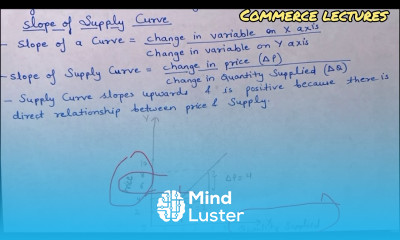 COMMERCE LECTURES
Slope of Supply Curve
- Slope of a Curve = change in variable on X axis
change in variable on Y axis
- Slope of Supply Curve = change in price (ΔP)
change in Quantity Supplied (ΔQ)
- Supply Curve slopes upwards & is positive because there is
direct relationship between price & Supply.
Y
ΔP = 4
Mind
Luster